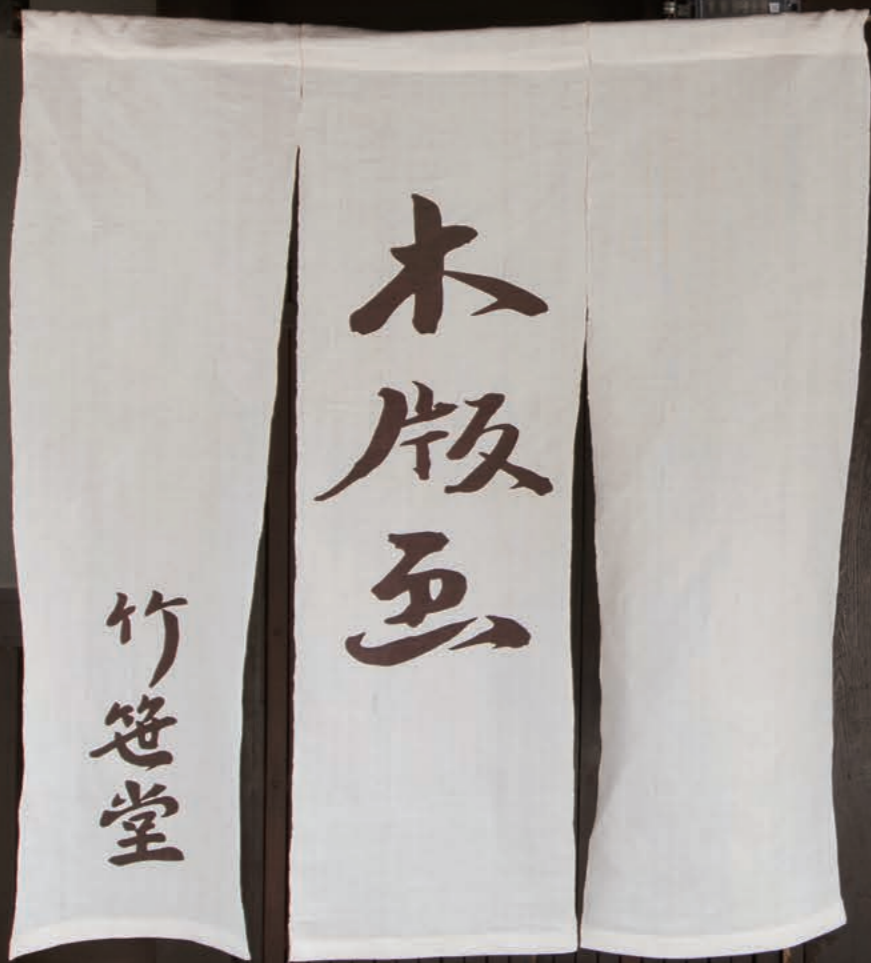 木版画
竹笹堂